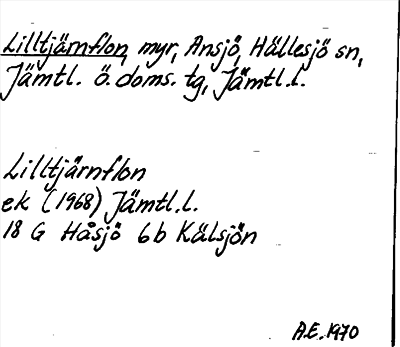 Lilltjärnflon, myr, Ansjö, Hällesjö sn,
Jämtl. ö. doms. tg, Jämtl.l.
Lilltjärnflon
ek (1968) Jämtl.l.
18 G Håsjö 6b Kälsjön
A.E. 1970